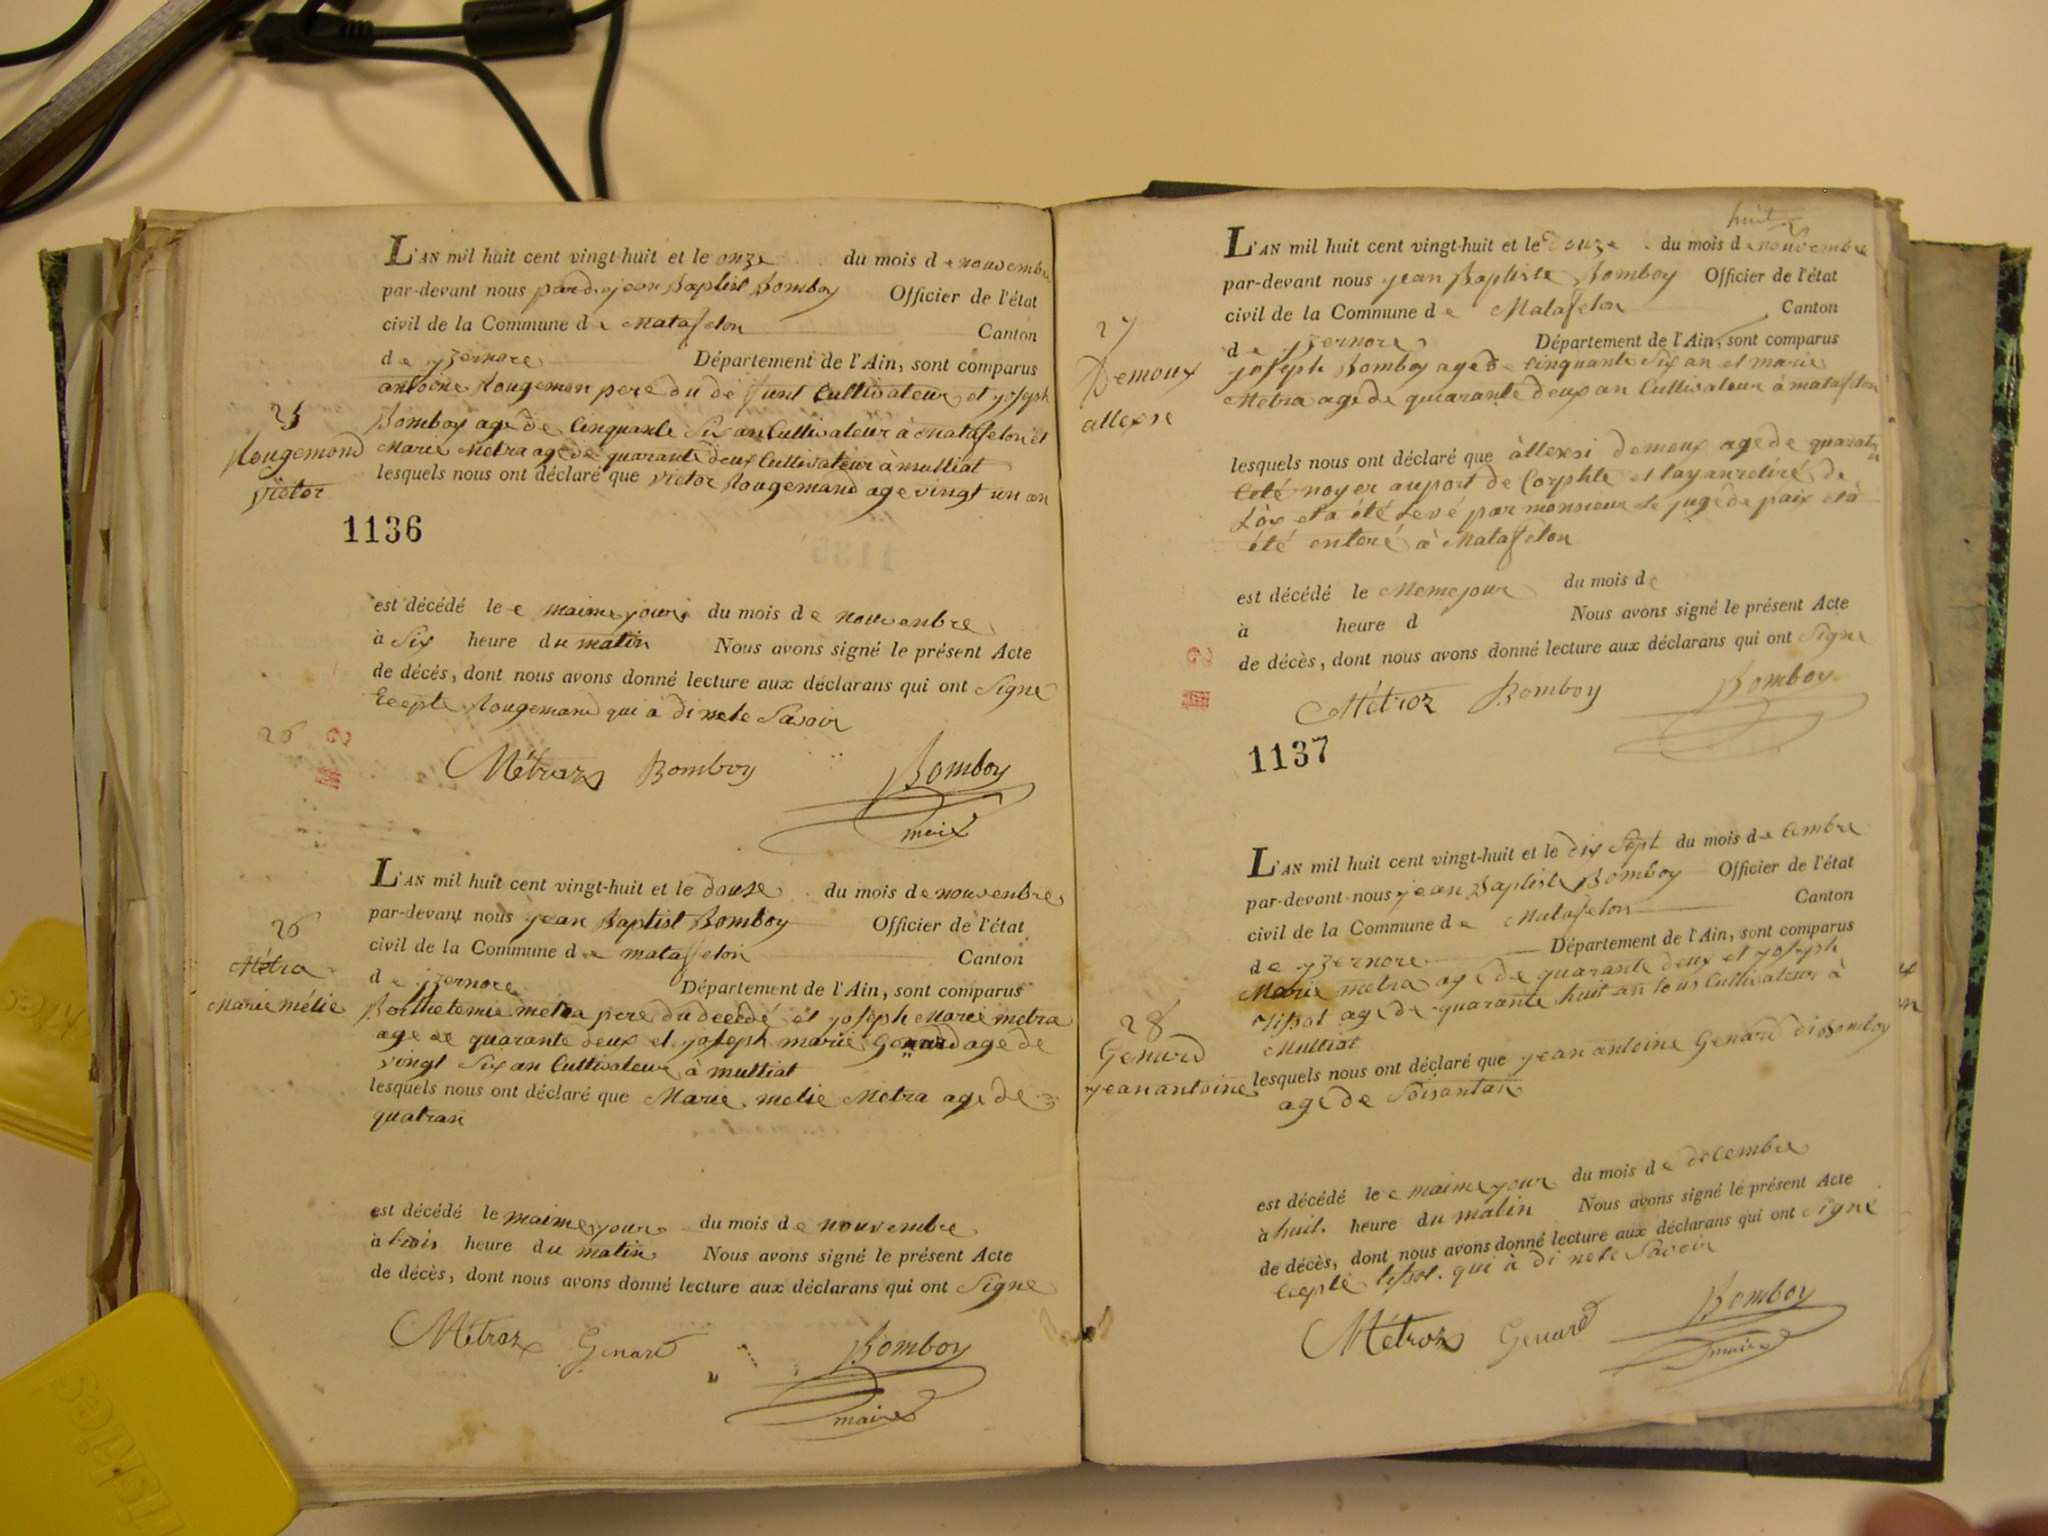 L'AN mil huit cent vingt-huit et le onze du mois de nouvembre
par-devant nous jean Baptist Bomboy Officier de l'état
civil de la Commune de Matafelon Canton
de yzernore Département de l'Ain, sont comparus
antoine Rougemon pere du défunt Cultivateur et joseph
25
Bomboy age de Cinquante Six an Cultivateur à Matafelon et
Rougemond
Marie Metra age de quarante deux Cultivateur à mulliat
victor
lesquels nous ont déclaré que victor Rougemand age vingt un an
1136
est décédé le maime jour du mois de nouvenbre
à Six heure du matin Nous avons signé le présent Acte
de décés, dont nous avons donné lecture aux déclarans qui ont Signe
Ecepte Rougemand qui à di nele Savoir
26
Métroz Bomboy Bomboy
maire
L'AN mil huit cent vingt-huit et le douse du mois de nouvenbre
par-devant nous jean Baptist Bomboy Officier de l'état
26
civil de la Commune de matafelon Canton
Métra
de izernore Département de l'Ain, sont comparus
Marie mélie
Barthetemie metra pere du decedé et joseph Marie metra
age de quarante deux et joseph marie Genard age de
vingt Six an Cultivateur à mulliat
lesquels nous ont déclaré que Marie melie Metra age de
quatran
est décédé le maime jour du mois de nouvembre
à trois heure du matin Nous avons signé le présent Acte
de décès, dont nous avons donné lecture aux déclarans qui ont Signe
Métroz Genard Bomboy
maire
huit
L'AN mil huit cent vingt-huit et le Douze du mois de nouvembre
par-devant nous jean Baptiste Bomboy Officier de l'état
civil de la Commune de Matafelon Canton
27
de yzernore Département de l'Ain, sont comparus
Demoux
joseph Bomboy age de Cinquante Six an et marie
allexre
Metra age de quarante deux an Cultivateur à matafelon
lesquels nous ont déclaré que àllexsi demoux age de
été noyer au port de Corphle et layan retiré de
Lôx et a été Levé par monsieur le juge de paix et à
été enteré à Matafelon
est décédé le Meme jour du mois d
à heure d Nous avons signé le présent Acte
de décès, dont nous avons donné lecture aux déclarans qui ont Signe
Métroz Bomboy Bomboy
1137
L'AN mil huit cent vingt-huit et le dix Sept du mois de
par-devant nous jean Baptiste Bomboy Officier de l'état
civil de la Commune de Matafelon Canton
de yzernore Département de l'Ain, sont comparus
Marie metra age de quarante deux et joseph
Tissot age de quarante huit an tous Cultivateur à
28
Mulliat
Genard
lesquels nous ont déclaré que jean antoine Genard di Bomboy
jean antoine
age de Soisantan
est décédé le maime jour du mois de décembre
à huit heure du matin Nous avons signé le présent Acte
de décès, dont nous avons donné lecture aux déclarans qui ont signé
Ecepte tissot qui à di nele Savoir
Métroz Genard Bomboy
maire